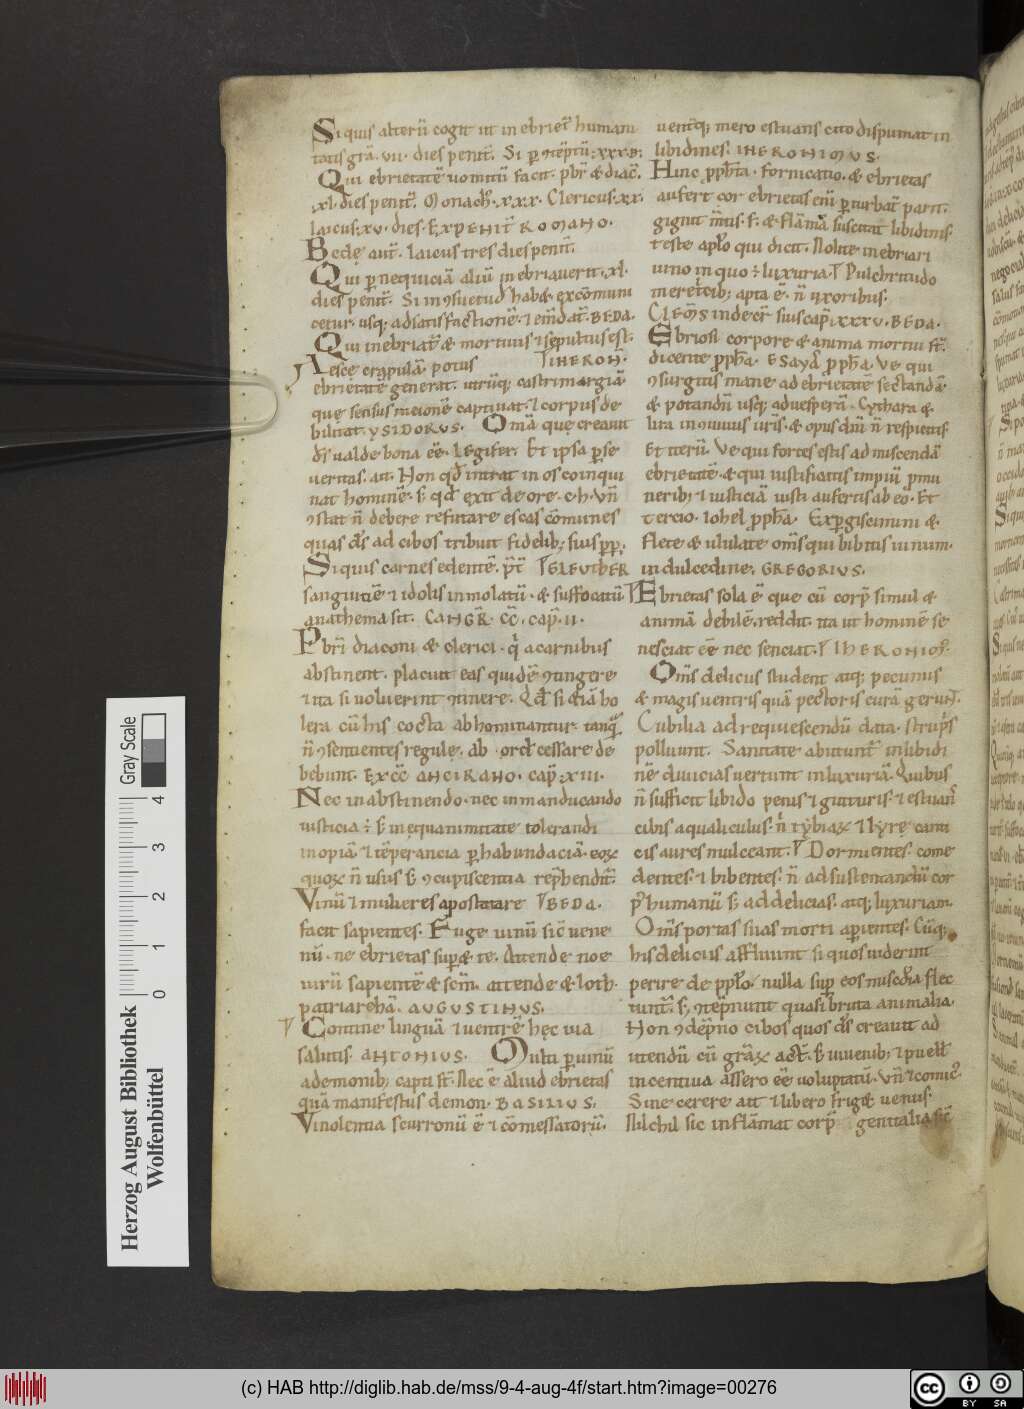 Si quis alterū cogit ut in ebriet̄ humani
tatis grā. vii. dies penit̄. Si p ꝯtēptū: xxx.
Qui ebrietatē uomitū facit. pbr̄ & diac̄.
xl. dies penit̄. Monach̄. xxx. Clericus. xx.
laicus. xv. dies. EXPENIT̄ ROMANO.
Bede aut̄. laicus tres dies penit̄.
Qui p nequiciā aliū inebriauerit. xl.
dies penit̄. Si in ꝯsuetud̄ habet excōmuni
cetur. usq; ad satisfactionē. & em̄dat̄. BEDA.
Qui inebriat̄ & mortuus & sepultus est.
A escę crapulā. potus IHERON̄.
ebrietatē generat. utrūq; castrimargiā
que sensus racionē captiuat. & corpus de
bilitat. YSIDORUS. Omā que creauit
ds̄ ualde bona ēē. Legifer. Et ipsa p se
ueritas. ait. Non qd̄ intrat in os coinqui
nat hominē. s; qd̄ exit de ore. e. h. Vn̄
ꝯstat n̄ debere refutare escas cōmunes
quas ds̄ ad cibos tribuit fidelib; suis pp̄.
Si quis carnes edentē. p̄t̄ ELEUTHER
sanguinē & idolis inmolatū. & suffocatū
anathema sit. CANGR̄. CC̄. cap̄. ii.
Pbr̄i diaconi & clerici. q̄ a carnibus
abstinent. placuit eas quidē ꝯtingere
& ita si uoluerint ꝯtinere. Qd̄ si etiā ho
lera cū his cocta abhominantur. tanq̄
n̄ ꝯsentientes regule. ab ord̄ cessare de
bebunt. EXCC̄ ANCIRANO. cap̄. xiii.
Nec in abstinendo. nec in manducando
iusticia ÷ s; in equanimitate tolerandi
inopiā. & tēperancia p habundaciā. eoꝝ
quoꝝ n̄ usus s; ꝯcupiscentia rep̄hendit̄.
Vinū & mulieres apostatare BEDA.
facit sapientes. Fuge uinū sic̄ uene
nū. ne ebrietas sup& te. Attende noe
uirū sapientē & sc̄m. attende & loth.
patriarchā. AUGUSTINUS.
Contine linguā & uentrē hęc uia
salutis. ANTONIUS. Multi p uinū
a demonib; capti st̄. Nec ē aliud ebrietas
quā manifestus demon. BASILIUS.
Vinolentia scurronū ē & cōmessatorū.
uentrēq; mero estuans cito dispumat in
libidines. IHERONIMUS.
Hinc pph̄ta. fornicatio. & ebrietas
aufert cor ebrietas enī pturbat̄ parit.
gignit īnus. f. & flāmā suscitat̄ libidinis.
teste aplo qui dicit. Nolite inebriari
uino in quo ÷ luxuria. Pulchritudo
meretricib; apta ē. n̄ uxoribus.
CLEM̄S inde cr̄ siuscap̄ xxxv. BEDA.
Ebriosi corpore & anima mortui st̄.
dicente pph̄a. ESAYĀ pph̄a. Ve qui
ꝯsurgitis mane ad ebrietatē sectandā
& potandū usq; ad uesperā. Cythara &
lira in uiuus ur̄is. & opus dn̄i n̄ respicitis.
Et iterū. Ve qui fortes estis ad miscendā
ebrietatē & qui iustificatis impiū p mu
nerib; & iusticiā iusti aufertis ab eo. Et
tercio. Iohel pph̄a. Expgiscimini &
flete & ululate om̄s qui bibitis uinum.
in dulcedine. GREGORIUS.
Ebrietas sola ē que cū corp̄ simul &
animā debilē reddit. ita ut hominē se
nesciat eē nec senciat. IHERONIM̄.
Om̄s delicius student atq; pecunus
& magis uentris quā pectoris curā gerunt̄.
Cubilia ad requiescendū data. strup̄s
polluunt. Sanitate abutunt̄ in libidi
nē diuicias uertunt in luxuriā. Quibus
n̄ sufficit libido penis & gutturis. & estuan̄
cibis aqualiculus. n̄ tybiaꝝ & lyrę canti
cis aures mulceant. Dormientes. come
dentes. & bibentes. n̄ ad sustentandū cor
p̄ humanū s; ad delicias. atq; luxuriam.
Om̄s portas suas morti apientes. Cūq;
his deliciis affluunt si quos uiderint
perire de pplo. nulla sup eos miscd̄ia flec
tunt̄. s; ꝯtēpnunt quasi bruta animalia.
Non ꝯdēpno cibos quos ds̄ creauit ad
utendū cū grāꝝ act̄. s; iuuenib; & puell̄
incentiua assero ēē uoluptatū. Vn̄ & comic̄.
Sine cerere ait & libero friget uenus.
Nichil sic inflāmat corp̄ genitalia sic̄
Gray Scale
0 1 2 3 4
Herzog August Bibliothek
Wolfenbüttel
(c) HAB http://diglib.hab.de/mss/9-4-aug-4f/start.htm?image=00276
cc BY SA